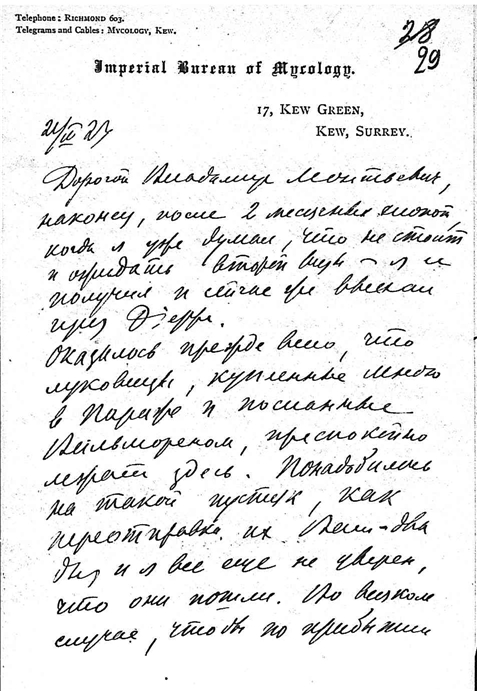 Telephone: RICHMOND 603.
Telegrams and Cables: MYCOLOGY, KEW.
28
29
Imperial Bureau of Mycology.
17, KEW GREEN,
KEW, SURREY.
Дорогой Владимир
наконец, после 2 месячных
когда я уже думал, что не стоит
и ожидать второй визы – я ее
получил и сейчас же выехал
через
Оказалось прежде всего, что
луковицы, купленные много
в Париже и посланные
Вильмореном, преспокойно
лежат здесь. Понадобилось
на такой пустяк, как
переотправка их Вам – два
дня и я все еще не уверен,
что они пошли. Во всяком
случае, чтобы по прибытии